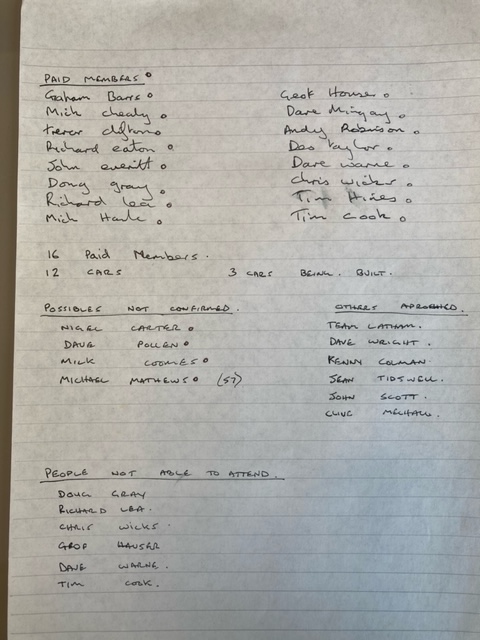 PAID MEMBERS
Graham Barrs
Mick chealy
trevor
Richard eaton
John everitt
Doug gray
Richard lea
Mich Hank
Geof House
Dave Mingay
Andy Robinson
Des taylor
Dave warne
chris wicks
Tim Hines
Tim Cook
16 Paid Members.
12 CARS 3 CARS BEING. BUILT.
POSSIBLES NOT CONFIRMED.
NIGEL CARTER
DAVE POLLEN
MICK COOMES
MICHAEL MATHEWS (57)
OTHERS APROCHED.
TEAM LATHAM.
DAVE WRIGHT.
KENNY COLMAN.
JEAN TIDSWELL.
JOHN SCOTT.
CLIVE
PEOPLE NOT ABLE TO ATTEND.
DOUG GRAY
RICHARD LEA.
CHRIS WICKS.
GEOF HAUSER
DAVE WARNE.
TIM COOK.